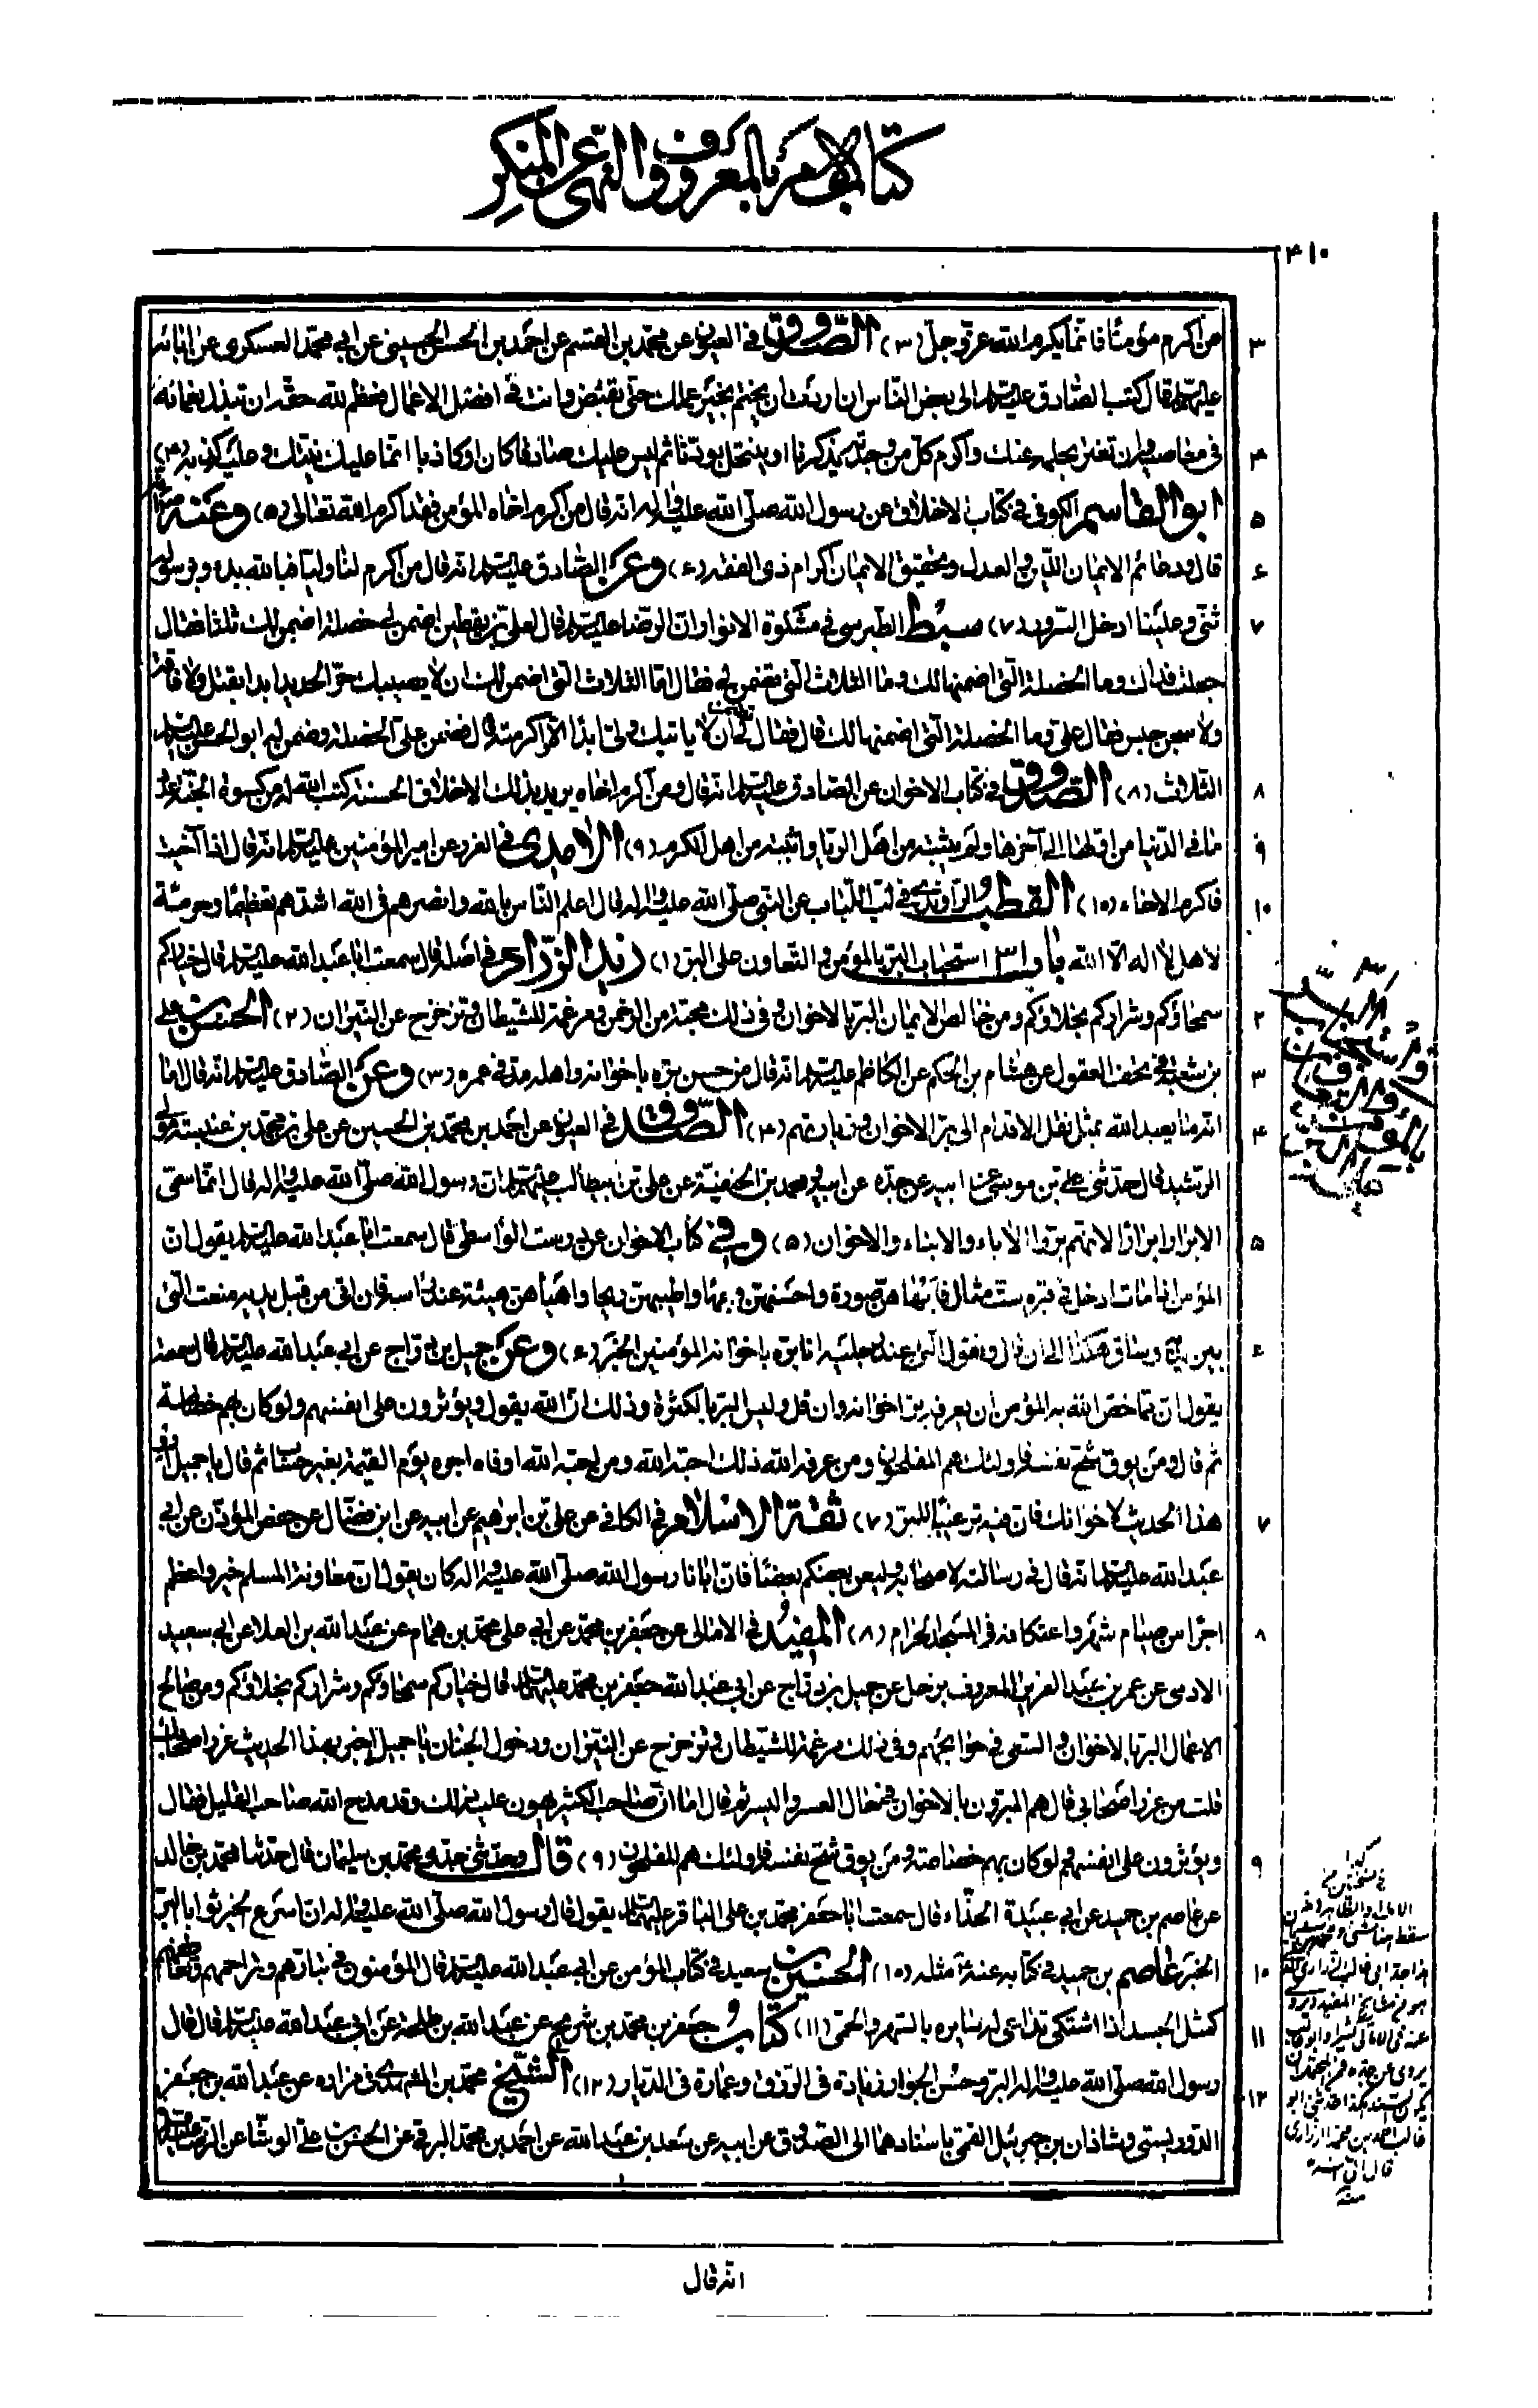 كتاب الامر بالمعروف والنهى عن المنكر
۴۱۰
من اكرم مؤمنا فانما يكرم الله عزوجل (۳) الصدوق في العيون عن محمد بن القسم عن احمد بن الحسن الحسيني عن ابي محمد العسكرى عن ابائه
عليهم السلام قال كتب الصادق عليه السلام الى بعض الناس ان اردت ان يختم بخير عملك حتى تقبض وانت في افضل الاعمال فعظم لله حقه ان تبذل نعمائه
في معاصيه وان تغتر بحلمه عنك واكرم كل من وجدته يذكرنا او ينتحل مودتنا ثم ليس عليك صادقا كان او كاذبا انما عليك نيتك وعليه كذبه (۴)
ابو القاسم الكوفي في كتاب الاخلاق عن رسول الله صلى الله عليه واله انه قال من اكرم اخاه المؤمن فقد اكرم الله تعالى (۵) وعنه
قال ودعائم الايمان اللين والعدل وتحقيق الايمان اكرام ذى الفقه (۶) وعن الصادق عليه السلام انه قال من اكرم لنا وليا فبالله بدء وبرسوله
ثنى وعلينا ادخل السرور (۷) سبط الطبرسى في مشكوة الانوار ان الرضا عليه السلام قال لعلى بن يقطين اضمن لي خصلة اضمن لك ثلثا فقال
جعلت فداك وما الخصلة التى اضمنها لك وما الثلاث التى تضمن لي فقال اما الثلاث التى اضمن لك ان لا يصيبك حر الحديد ابدا بقتل ولا فاقة
ولا سجن حبس فقال على وما الخصلة التى اضمنها لك قال فقال تضمن ان لا ياتيك ولى ابدا الا اكرمته قال فضمن على الخصلة وضمن له ابو الحسن عليه السلام
الثلاث (۸) الصدوق في كتاب الاخوان عن الصادق عليه السلام انه قال ومن اكرم اخاه يريد بذلك الاخلاق الحسنة كتب الله له من كسوة الجنة عدد
ما في الدنيا من اولها الى آخرها ولم يثبته من اهل الريا واثبته من اهل الكرم (۹) الآمدى في الغرر عن امير المؤمنين عليه السلام انه قال اذا آخيت
فاكرم الاخاء (۱۰) القطب الراوندي في لب اللباب عن النبي صلى الله عليه واله قال اعلم الناس بالله وانصرهم في الله اشدهم تعظيما وحرمة
لاهل لا اله الا الله باب ۳۱ استحباب البر بالمؤمن والتعاون على البر (۱) زيد الزراد في اصله قال سمعت ابا عبد الله عليه السلام قال خياركم
سمحاؤكم وشراركم بخلاؤكم ومن خالص الايمان البر بالاخوان وفي ذلك محبة من الرحمن ومرغمة للشيطان وتزحزح عن النيران (۲) الحسن بن على
بن شعبة في تحف العقول عن هشام بن الحكم عن الكاظم عليه السلام انه قال من حسن بره باخوانه واهله مد في عمره (۳) وعن الصادق عليه السلام انه قال اما
انه ما يعبد الله بمثل نقل الاقدام الى بر الاخوان وزيارتهم (۴) الصدوق في العيون عن احمد بن محمد بن الحسين عن على بن محمد بن عنبسة مولى
الرشيد قال حدثنى على بن موسى عن ابيه عن جده عن ابيه ومحمد بن الحنفية عن على بن ابيطالب عليهم السلام ان رسول الله صلى الله عليه واله قال انما سمى
الابرار ابرارا لانهم بروا الاباء والابناء والاخوان (۵) وفي كتاب الاخوان عن درست الواسطى قال سمعت ابا عبد الله عليه السلام يقول ان
المؤمن اذا مات ادخل في قبره ست مثال فابهاهن صورة واحسنهن وجها واطيبهن ريحا واهيأهن هيئة عند راسه فان اتى من قبل يديه منعت التى
بين يديه وساق هكذا الى ان قال ويقول التى عند رجليه انا بره باخوانه المؤمنين الخبر (۶) وعن جميل بن دراج عن ابي عبد الله عليه السلام قال سمعته
يقول ان مما خص الله به المؤمن ان يعرفه بر اخوانه وان قل وليس البر بالكثرة وذلك ان الله يقول ويؤثرون على انفسهم ولو كان بهم خصاصة
ثم قال ومن يوق شح نفسه فاولئك هم المفلحون ومن عرفه الله ذلك احبه الله ومن احبه الله اوفاه اجره يوم القيمة بغير حساب ثم قال يا جميل ارو
هذا الحديث لاخوانك فان فيه ترغيبا للبر (۷) ثقة الاسلام في الكافي عن على بن ابراهيم عن ابيه عن ابن فضال عن حفص المؤذن عن ابي
عبد الله عليه السلام انه قال في رسالته لاصحابه وليعن بعضكم بعضا فان ابانا رسول الله صلى الله عليه واله كان يقول ان معاونة المسلم خير واعظم
اجرا من صيام شهر واعتكافه في المسجد الحرام (۸) المفيد في الامالى عن جعفر بن محمد عن ابي على محمد بن همام عن عبد الله بن العلا عن ابي سعيد
الادمى عن عمر بن عبد العزيز المعروف بزحل عن جميل بن دراج عن ابي عبد الله جعفر بن محمد عليهما السلام قال خياركم سمحاؤكم وشراركم بخلاؤكم ومن صالح
الاعمال البر بالاخوان والسعى في حوائجهم وفي ذلك مرغمة للشيطان وتزحزح عن النيران ودخول الجنان يا جميل اخبر بهذا الحديث غرر اصحابك
قلت من غرر اصحابي قال هم البررون بالاخوان في حال العسر واليسر ثم قال اما ان صاحب الكثير يهون عليه ذلك وقد مدح الله صاحب القليل فقال
ويؤثرون على انفسهم ولو كان بهم خصاصة ومن يوق شح نفسه فاولئك هم المفلحون (۹) قال وحدثنى جدى محمد بن سليمان قال حدثنا محمد بن خالد
عن عاصم بن حميد عن ابي عبيدة الحذاء قال سمعت ابا جعفر محمد بن على الباقر عليهما السلام يقول قال رسول الله صلى الله عليه واله ان اسرع الخير ثوابا البر
الخبر عاصم بن حميد في كتابه عنه مثله (۱۰) الحسين بن سعيد في كتاب المؤمن عن ابي عبد الله عليه السلام قال المؤمنون في تبارهم وتراحمهم وتعاطفهم
كمثل الجسد اذا اشتكى تداعى له سايره بالسهر والحمى (۱۱) كتاب جعفر بن محمد بن شريح عن عبد الله بن طلحة عن ابي عبد الله عليه السلام قال قال
رسول الله صلى الله عليه واله البر وحسن الجوار زيادة في الرزق وعمارة في الديار (۱۲) الشيخ محمد بن المشهدى في مزاره عن عبد الله بن جعفر
الدوريستى وشاذان بن جبرئيل القمى باسنادهما الى الصدوق عن ابيه عن سعد بن عبد الله عن احمد بن محمد البرقى عن الحسن بن على الوشا عن الرضا عليه السلام
۳
۴
۵
۶
۷
۸
۹
۱۰
۲
۳
۴
۵
۶
۷
۸
۹
۱۰
۱۱
۱۲
كذا
في نسختين من
الامالى والظاهر
سقط
هو من مشايخ المفيد ويروى
عنه في الامالى كثيرا
يروى عن جده
يكون السند هكذا حدثنى ابو
غالب احمد بن محمد الزرارى
قال
منه
انه قال